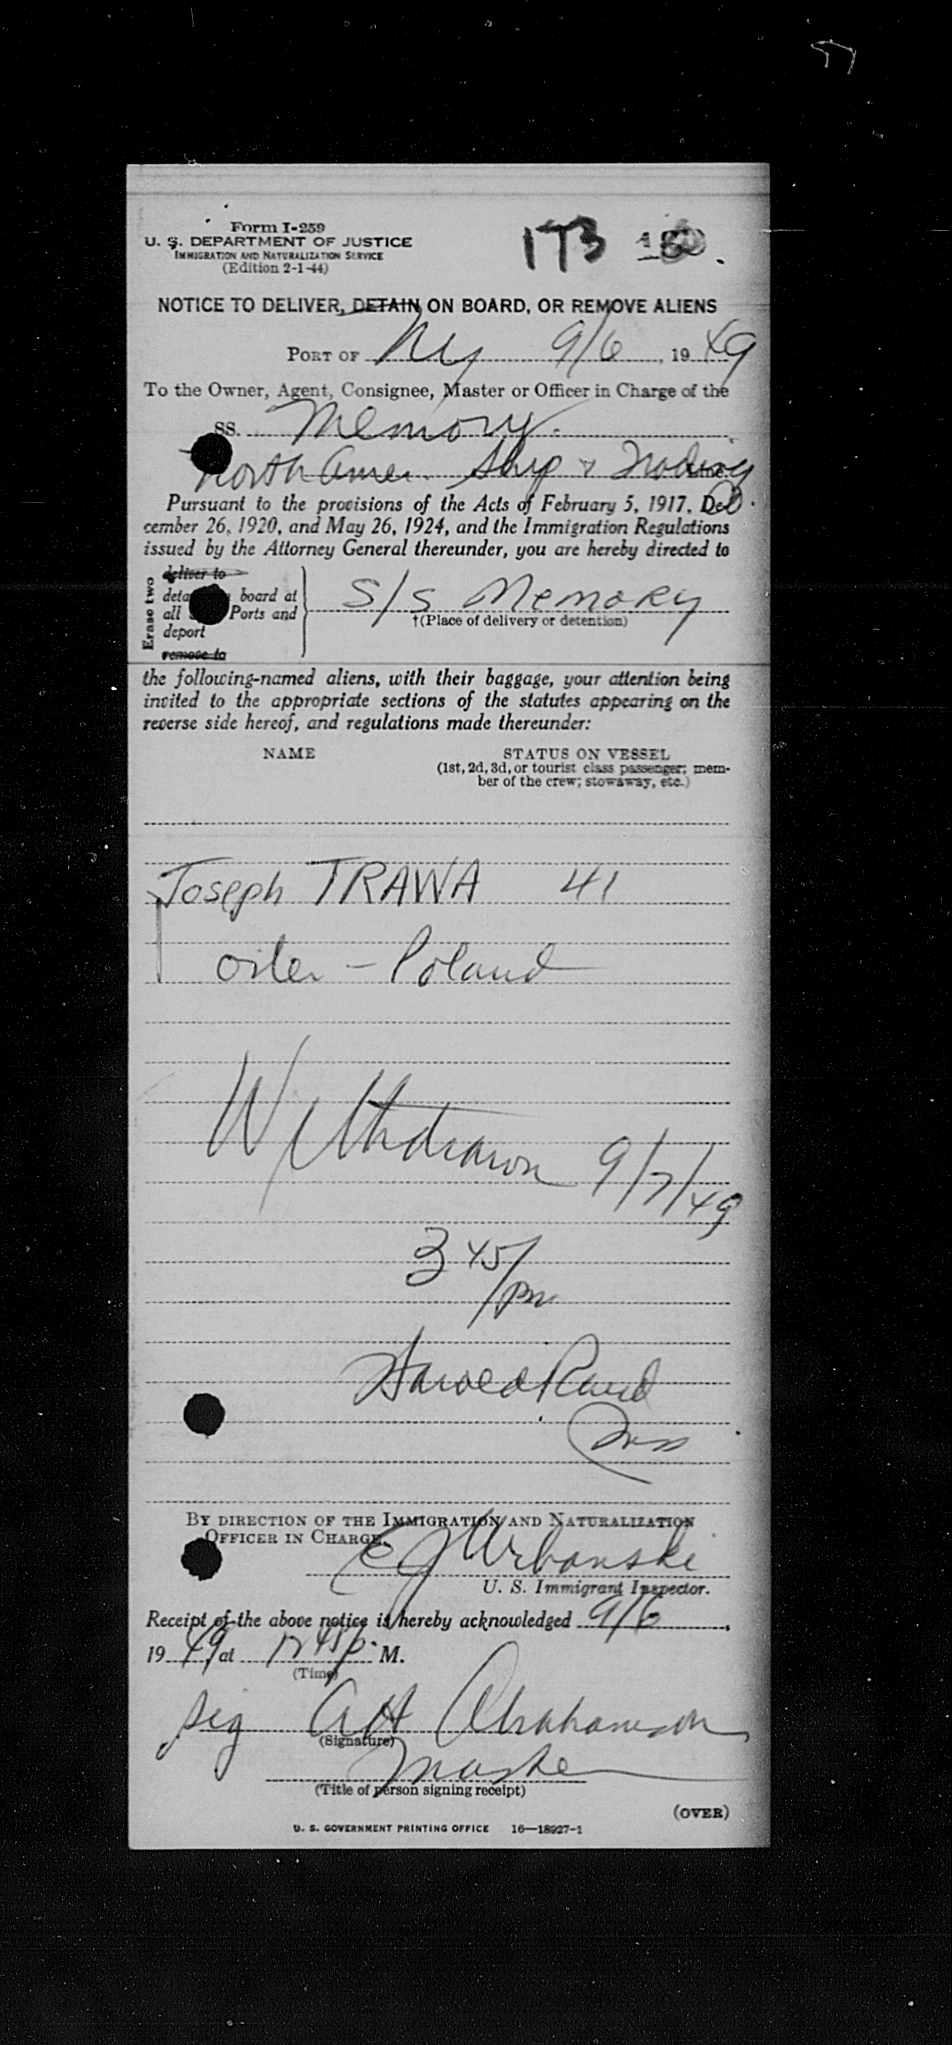 Form I-259
U. S. DEPARTMENT OF JUSTICE
IMMIGRATION AND NATURALIZATION SERVICE
(Edition 2-1-44)
173
NOTICE TO DELIVER, DETAIN ON BOARD, OR REMOVE ALIENS
PORT OF NY 9/6, 1949
To the Owner, Agent, Consignee, Master or Officer in Charge of the
SS. Memory
North Amer. Ship & Trading
Pursuant to the provisions of the Acts of February 5, 1917, De-
cember 26, 1920, and May 26, 1924, and the Immigration Regulations
issued by the Attorney General thereunder, you are hereby directed to
Erase two
deliver to
board at
all Ports and
deport
remove to
S/S Memory
†(Place of delivery or detention)
the following-named aliens, with their baggage, your attention being
invited to the appropriate sections of the statutes appearing on the
reverse side hereof, and regulations made thereunder:
NAME STATUS ON VESSEL
(1st, 2d, 3d, or tourist class passenger; mem-
ber of the crew; stowaway, etc.)
Joseph TRAWA 41
oiler - Poland
Withdrawn 9/7/49
3 45/pm
Harold Rand
Ins
BY DIRECTION OF THE IMMIGRATION AND NATURALIZATION
OFFICER IN CHARGE.
E J Urbanski
U. S. Immigrant Inspector.
Receipt of the above notice is hereby acknowledged 9/6,
1949 at 12 45 p. M.
(Time)
sig A H Abrahamson
(Signature)
Master
(Title of person signing receipt)
(OVER)
U. S. GOVERNMENT PRINTING OFFICE 16—18927-1